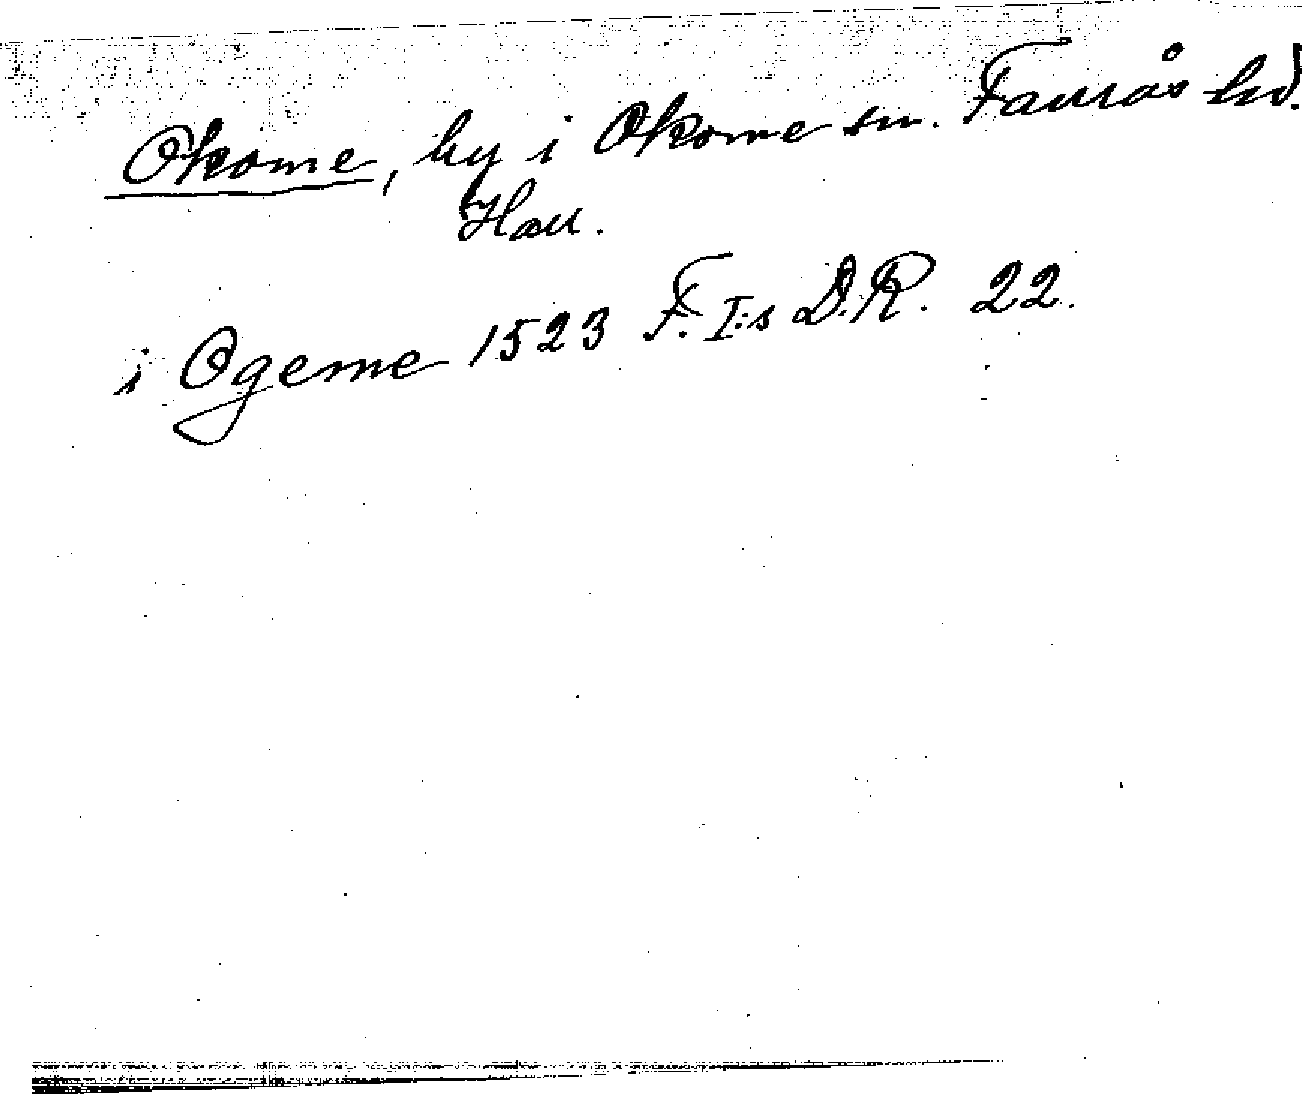 Okome, by i Okome sn. Faurås hd.
Hall.
i Ogeme 1523 F. I:s D.R. 22.